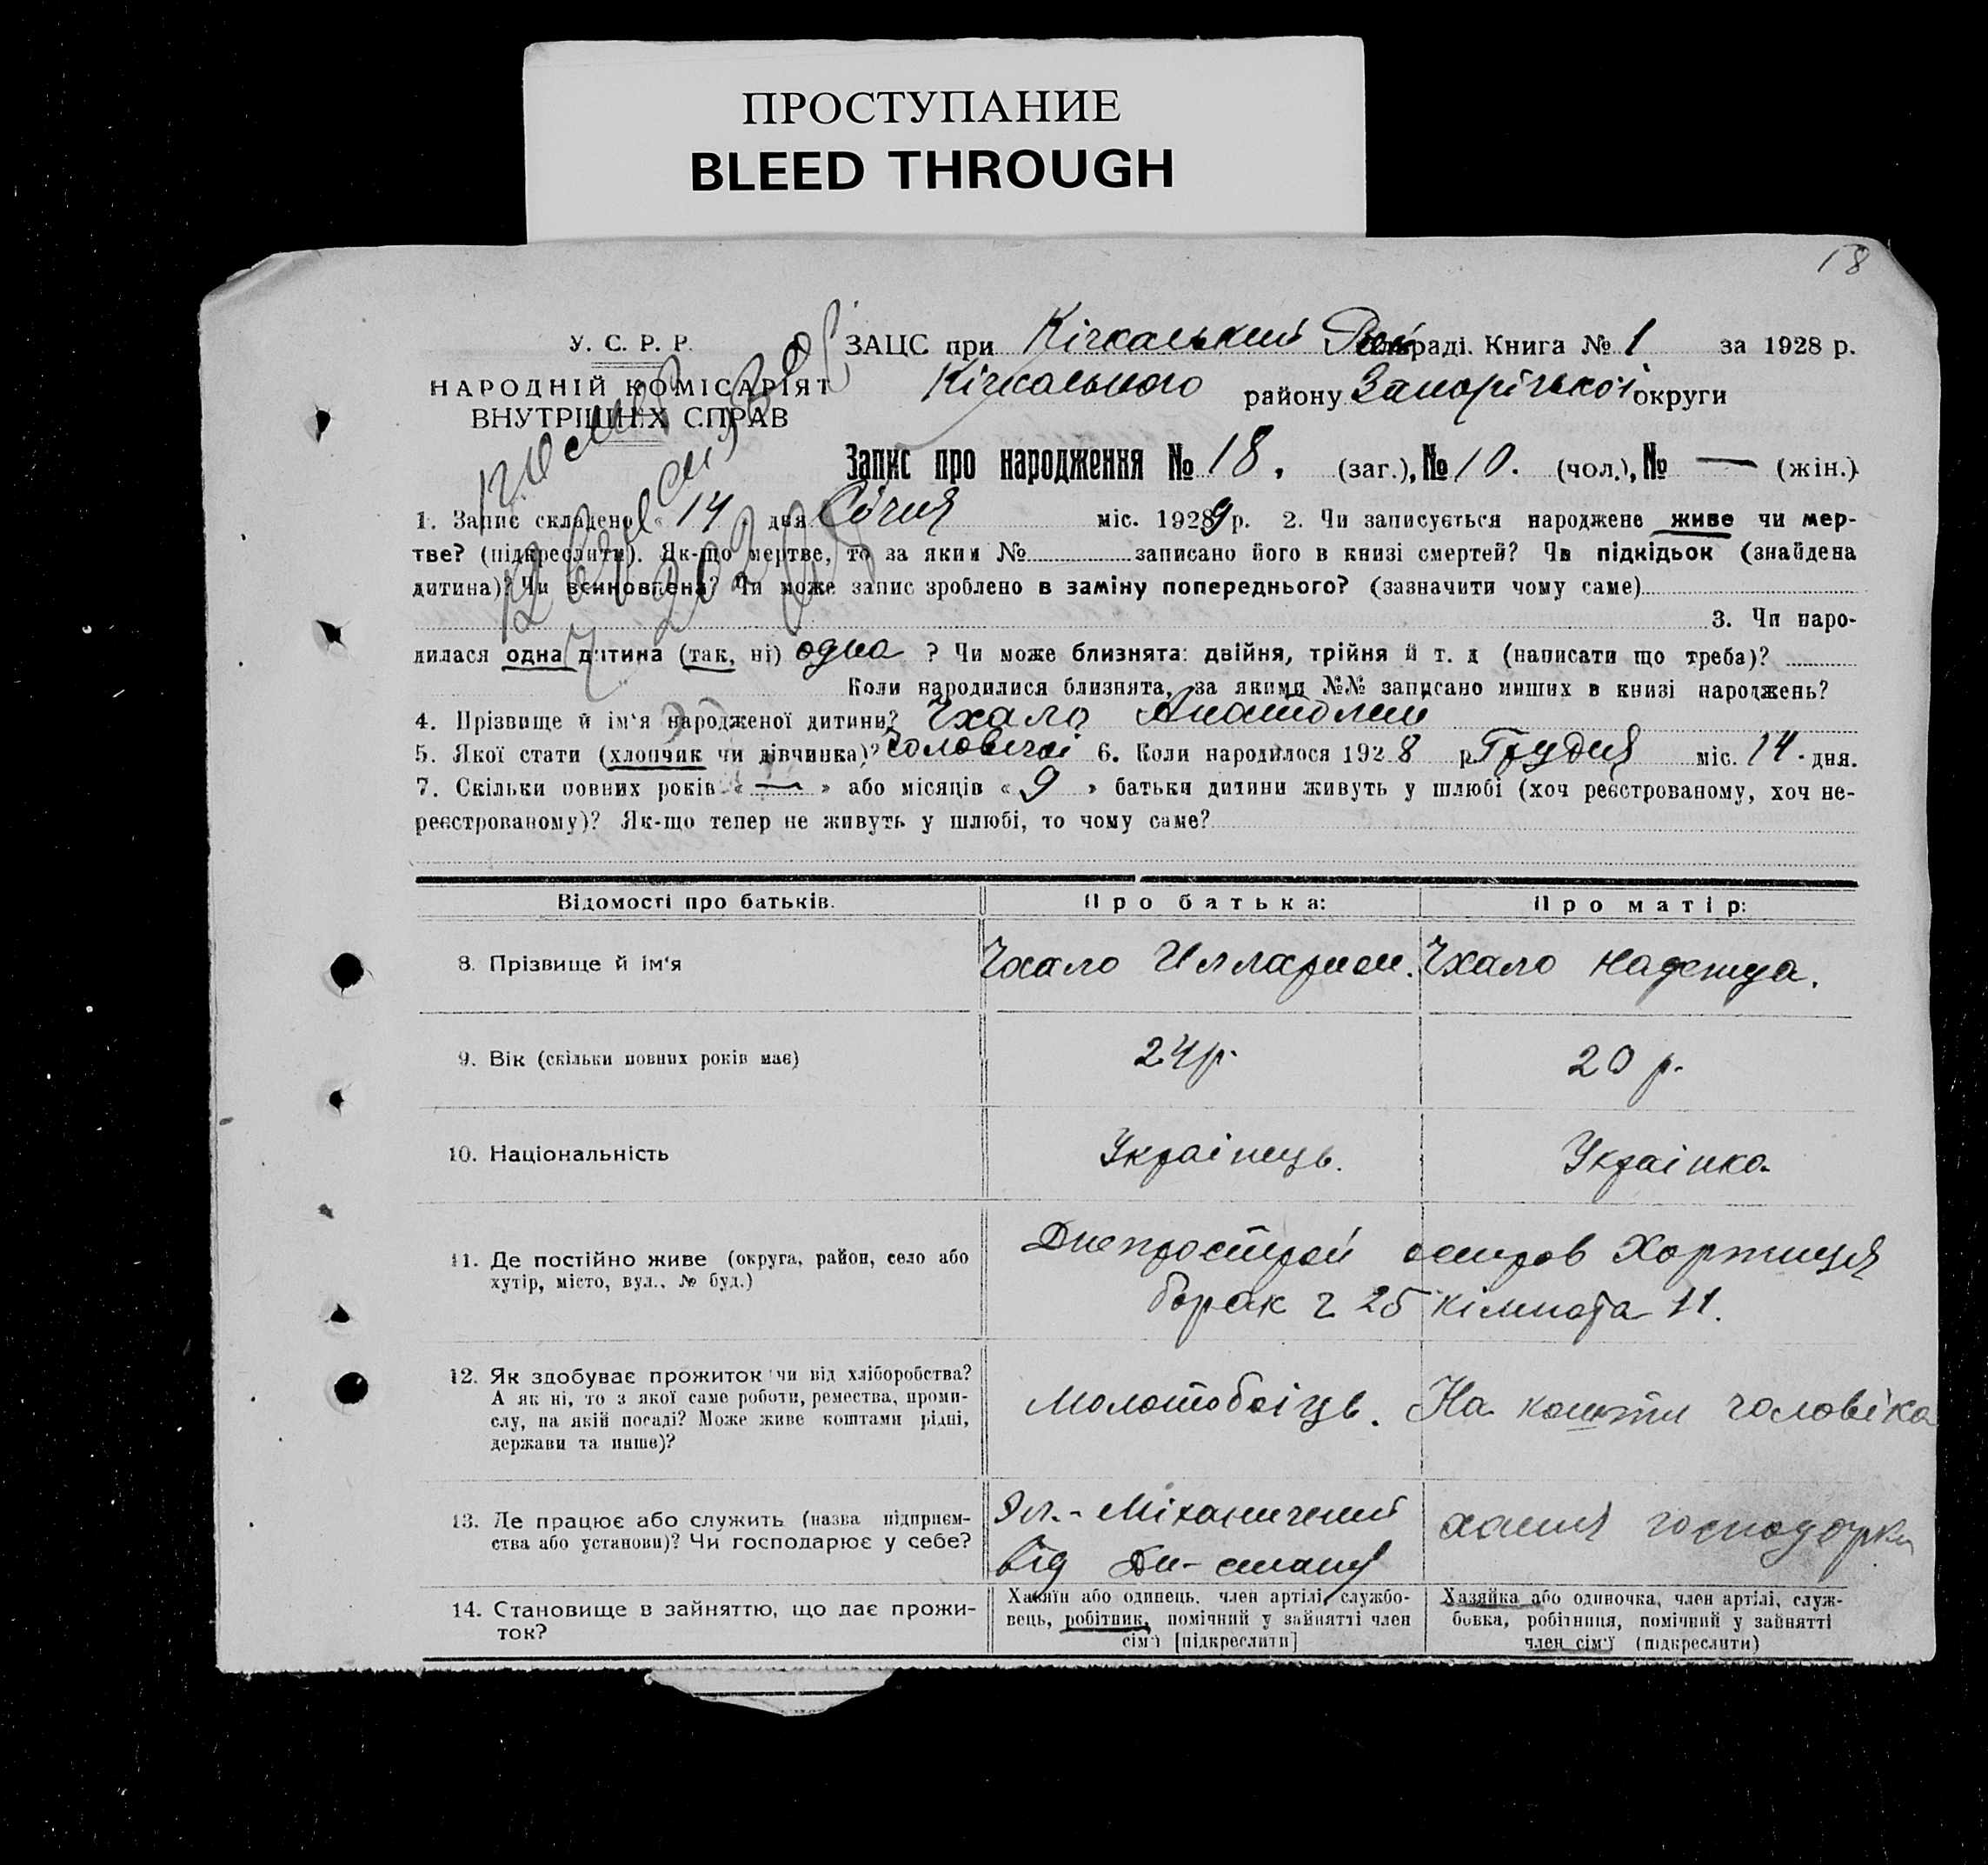 ПРОСТУПАНИЕ
BLEED THROUGH
18
У. С. Р. Р.
НАРОДНІЙ КОМІСАРІЯТ
ВНУТРІШНІХ СПРАВ
ЗАЦС при Кічкаський раді. Книга № 1 за 1928 р.
Кічкаського району Запорізької округи
Запис про народження № 18. (заг.), № 10. (чол.), № — (жін.)
1. Запис складено « 14 » дня Січня міс. 1929 р. 2. Чи записується народжене живе чи мер-
тве? (підкреслити). Як-що мертве, то за яким № записано його в книзі смертей? Чи підкідьок (знайдена
дитина)? Чи всиновлена? Чи може запис зроблено в заміну попереднього? (зазначити чому саме)
3. Чи наро-
дилася одна дитина (так, ні) одна ? Чи може близнята: двійня, трійня й т. д (написати що треба)?
Коли народилися близнята, за якими №№ записано инших в книзі народжень?
4. Прізвище й ім'я народженої дитини? Чхало Анатолий
5. Якої стати (хлопчик чи дівчинка)? Чоловічої 6. Коли народилося 1928 р Грудня міс. 14. дня.
7. Скільки повних років « — » або місяців « 9 » батьки дитини живуть у шлюбі (хоч реєстрованому, хоч не-
реєстрованому)? Як-що тепер не живуть у шлюбі, то чому саме?
Відомості про батьків. Про батька: Про матір:
8. Прізвище й ім'я Чхало Илларион. Чхало Надежда.
9. Вік (скільки повних років має) 24 р. 20 р.
10. Національність Українець. Українка
11. Де постійно живе (округа, район, село або
хутір, місто, вул., № буд.)
Днепрострой остров Хортиця
барак ч 25 кімната 11.
12. Як здобуває прожиток чи від хліборобства?
А як ні, то з якої саме роботи, ремества, проми-
слу, на якій посаді? Може живе коштами рідні,
держави та инше)?
Молотобоіць. На кошти чоловіка
13. Де працює або служить (назва підприєм-
ства або установи)? Чи господарює у себе?
Ел.-Міханичений
від Дн-стану
хатня господарка
14. Становище в зайняттю, що дає прожи-
ток?
Хазяїн або одинець, член артілі, службо-
вець, робітник, помічний у зайнятті член
сім'ї [підкреслити]
Хазяйка або одиночка, член артілі, служ-
бовка, робітниця, помічний у зайнятті
член сім'ї (підкреслити)